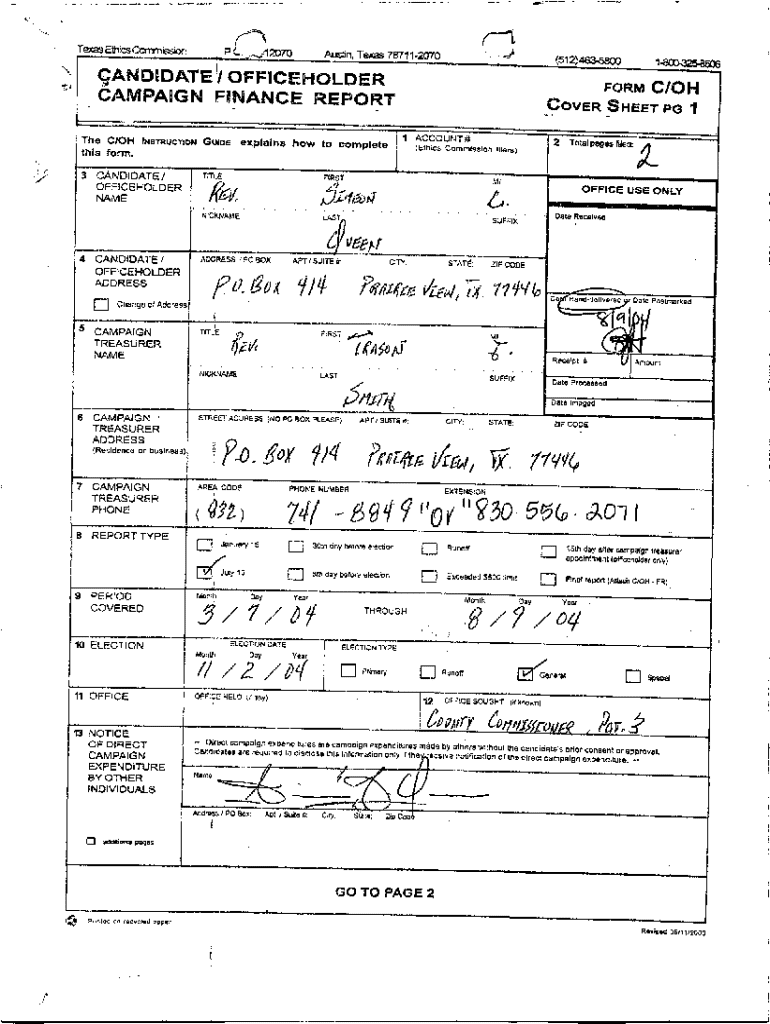 Texas Ethics Commission P 12070 Austin, Texas 78711-2070 (512) 463-5800 1-800-325-8506
CANDIDATE / OFFICEHOLDER
CAMPAIGN FINANCE REPORT
FORM C/OH
COVER SHEET PG 1
The C/OH INSTRUCTION GUIDE explains how to complete
this form.
1 ACCOUNT #
(Ethics Commission filers)
2 Total pages filed:
2
3 CANDIDATE /
OFFICEHOLDER
NAME
TITLE FIRST MI
REV. SIMEON L.
NICKNAME LAST SUFFIX
QUEEN
OFFICE USE ONLY
Date Received
4 CANDIDATE /
OFFICEHOLDER
ADDRESS
Change of Address
ADDRESS / PO BOX APT / SUITE #: CITY: STATE: ZIP CODE
P.O. BOX 414 PRAIRIE VIEW, TX. 77446
Date Hand-delivered or Date Postmarked
8/9/04
5 CAMPAIGN
TREASURER
NAME
TITLE FIRST MI
REV. TRASON
NICKNAME LAST SUFFIX
SMITH
Receipt # Amount
Date Processed
Date Imaged
6 CAMPAIGN
TREASURER
ADDRESS
(Residence or business)
STREET ADDRESS (NO PO BOX PLEASE) APT / SUITE #: CITY: STATE: ZIP CODE
P.O. BOX 414 PRAIRIE VIEW, TX. 77446
7 CAMPAIGN
TREASURER
PHONE
AREA CODE PHONE NUMBER EXTENSION
(832) 741 - 8849 "or" 830.556.2071
8 REPORT TYPE
January 15 30th day before election Runoff 15th day after campaign treasurer
appointment (officeholder only)
July 15 8th day before election Exceeded $500 limit Final report (Attach C/OH - FR)
9 PERIOD
COVERED
Month Day Year
3 / 7 / 04
THROUGH
Month Day Year
8 / 9 / 04
10 ELECTION
ELECTION DATE
Month Day Year
11 / 2 / 04
ELECTION TYPE
Primary Runoff General Special
11 OFFICE
OFFICE HELD (if any)
12 OFFICE SOUGHT (if known)
COUNTY COMMISSIONER, PCT. 3
13 NOTICE
OF DIRECT
CAMPAIGN
EXPENDITURE
BY OTHER
INDIVIDUALS
additional pages
** Direct campaign expenditures are campaign expenditures made by others without the candidate's prior consent or approval.
Candidates are required to disclose this information only if they receive notification of the direct campaign expenditure. **
Name
Address / PO Box; Apt / Suite #; City; State; Zip Code
GO TO PAGE 2
Printed on recycled paper
Revised 05/11/2003